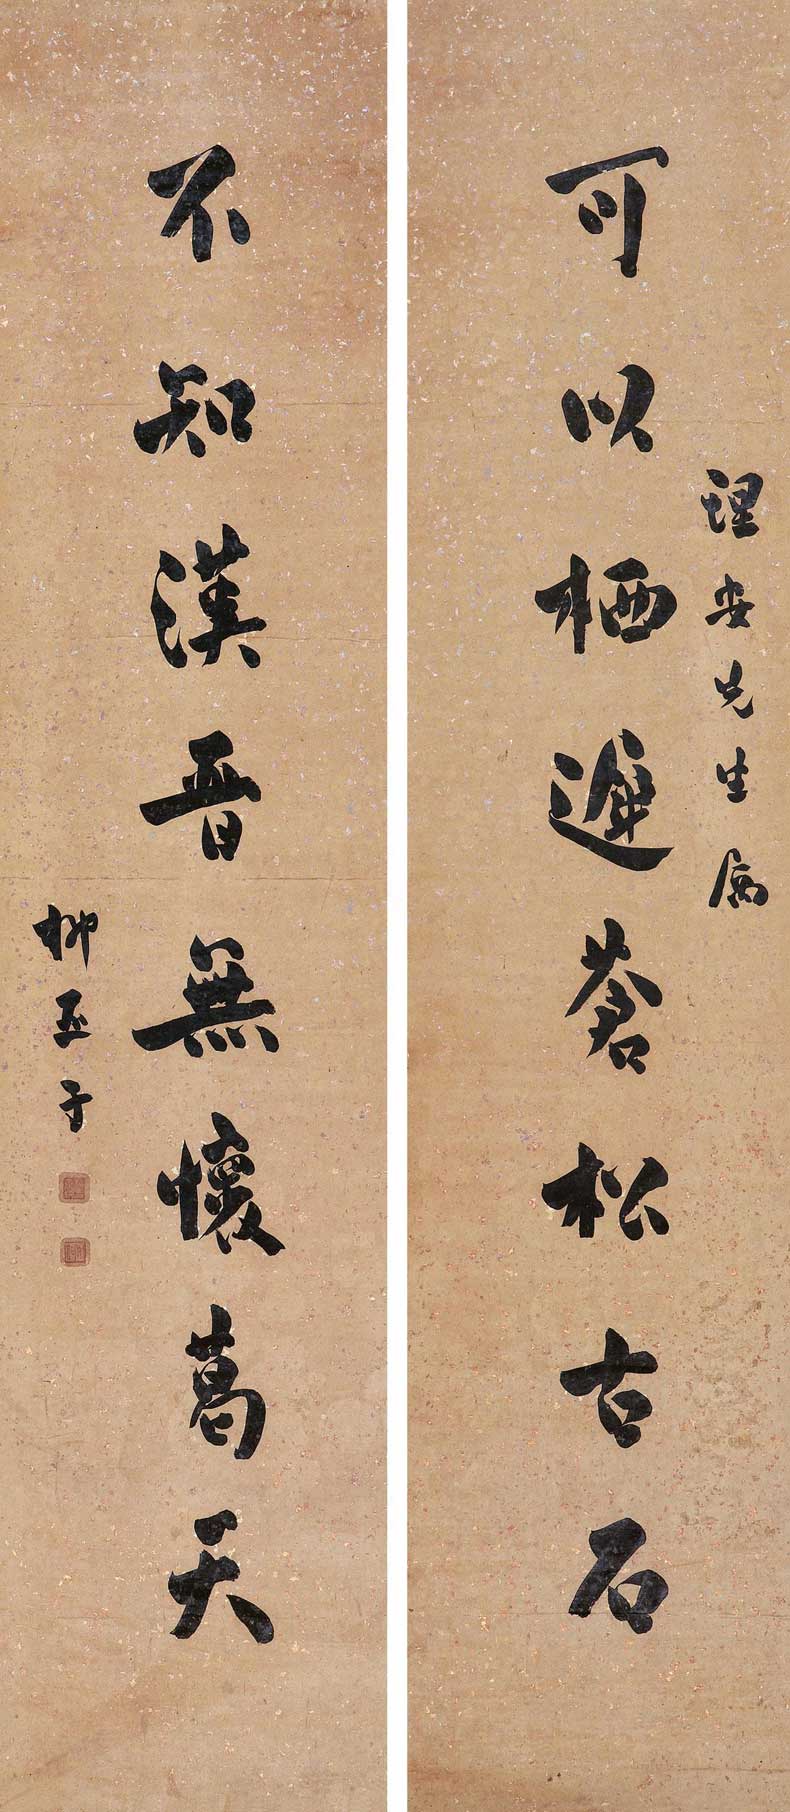 理安先生属
可以栖遲蒼松古石
不知漢晋無懷葛天
柳亚子